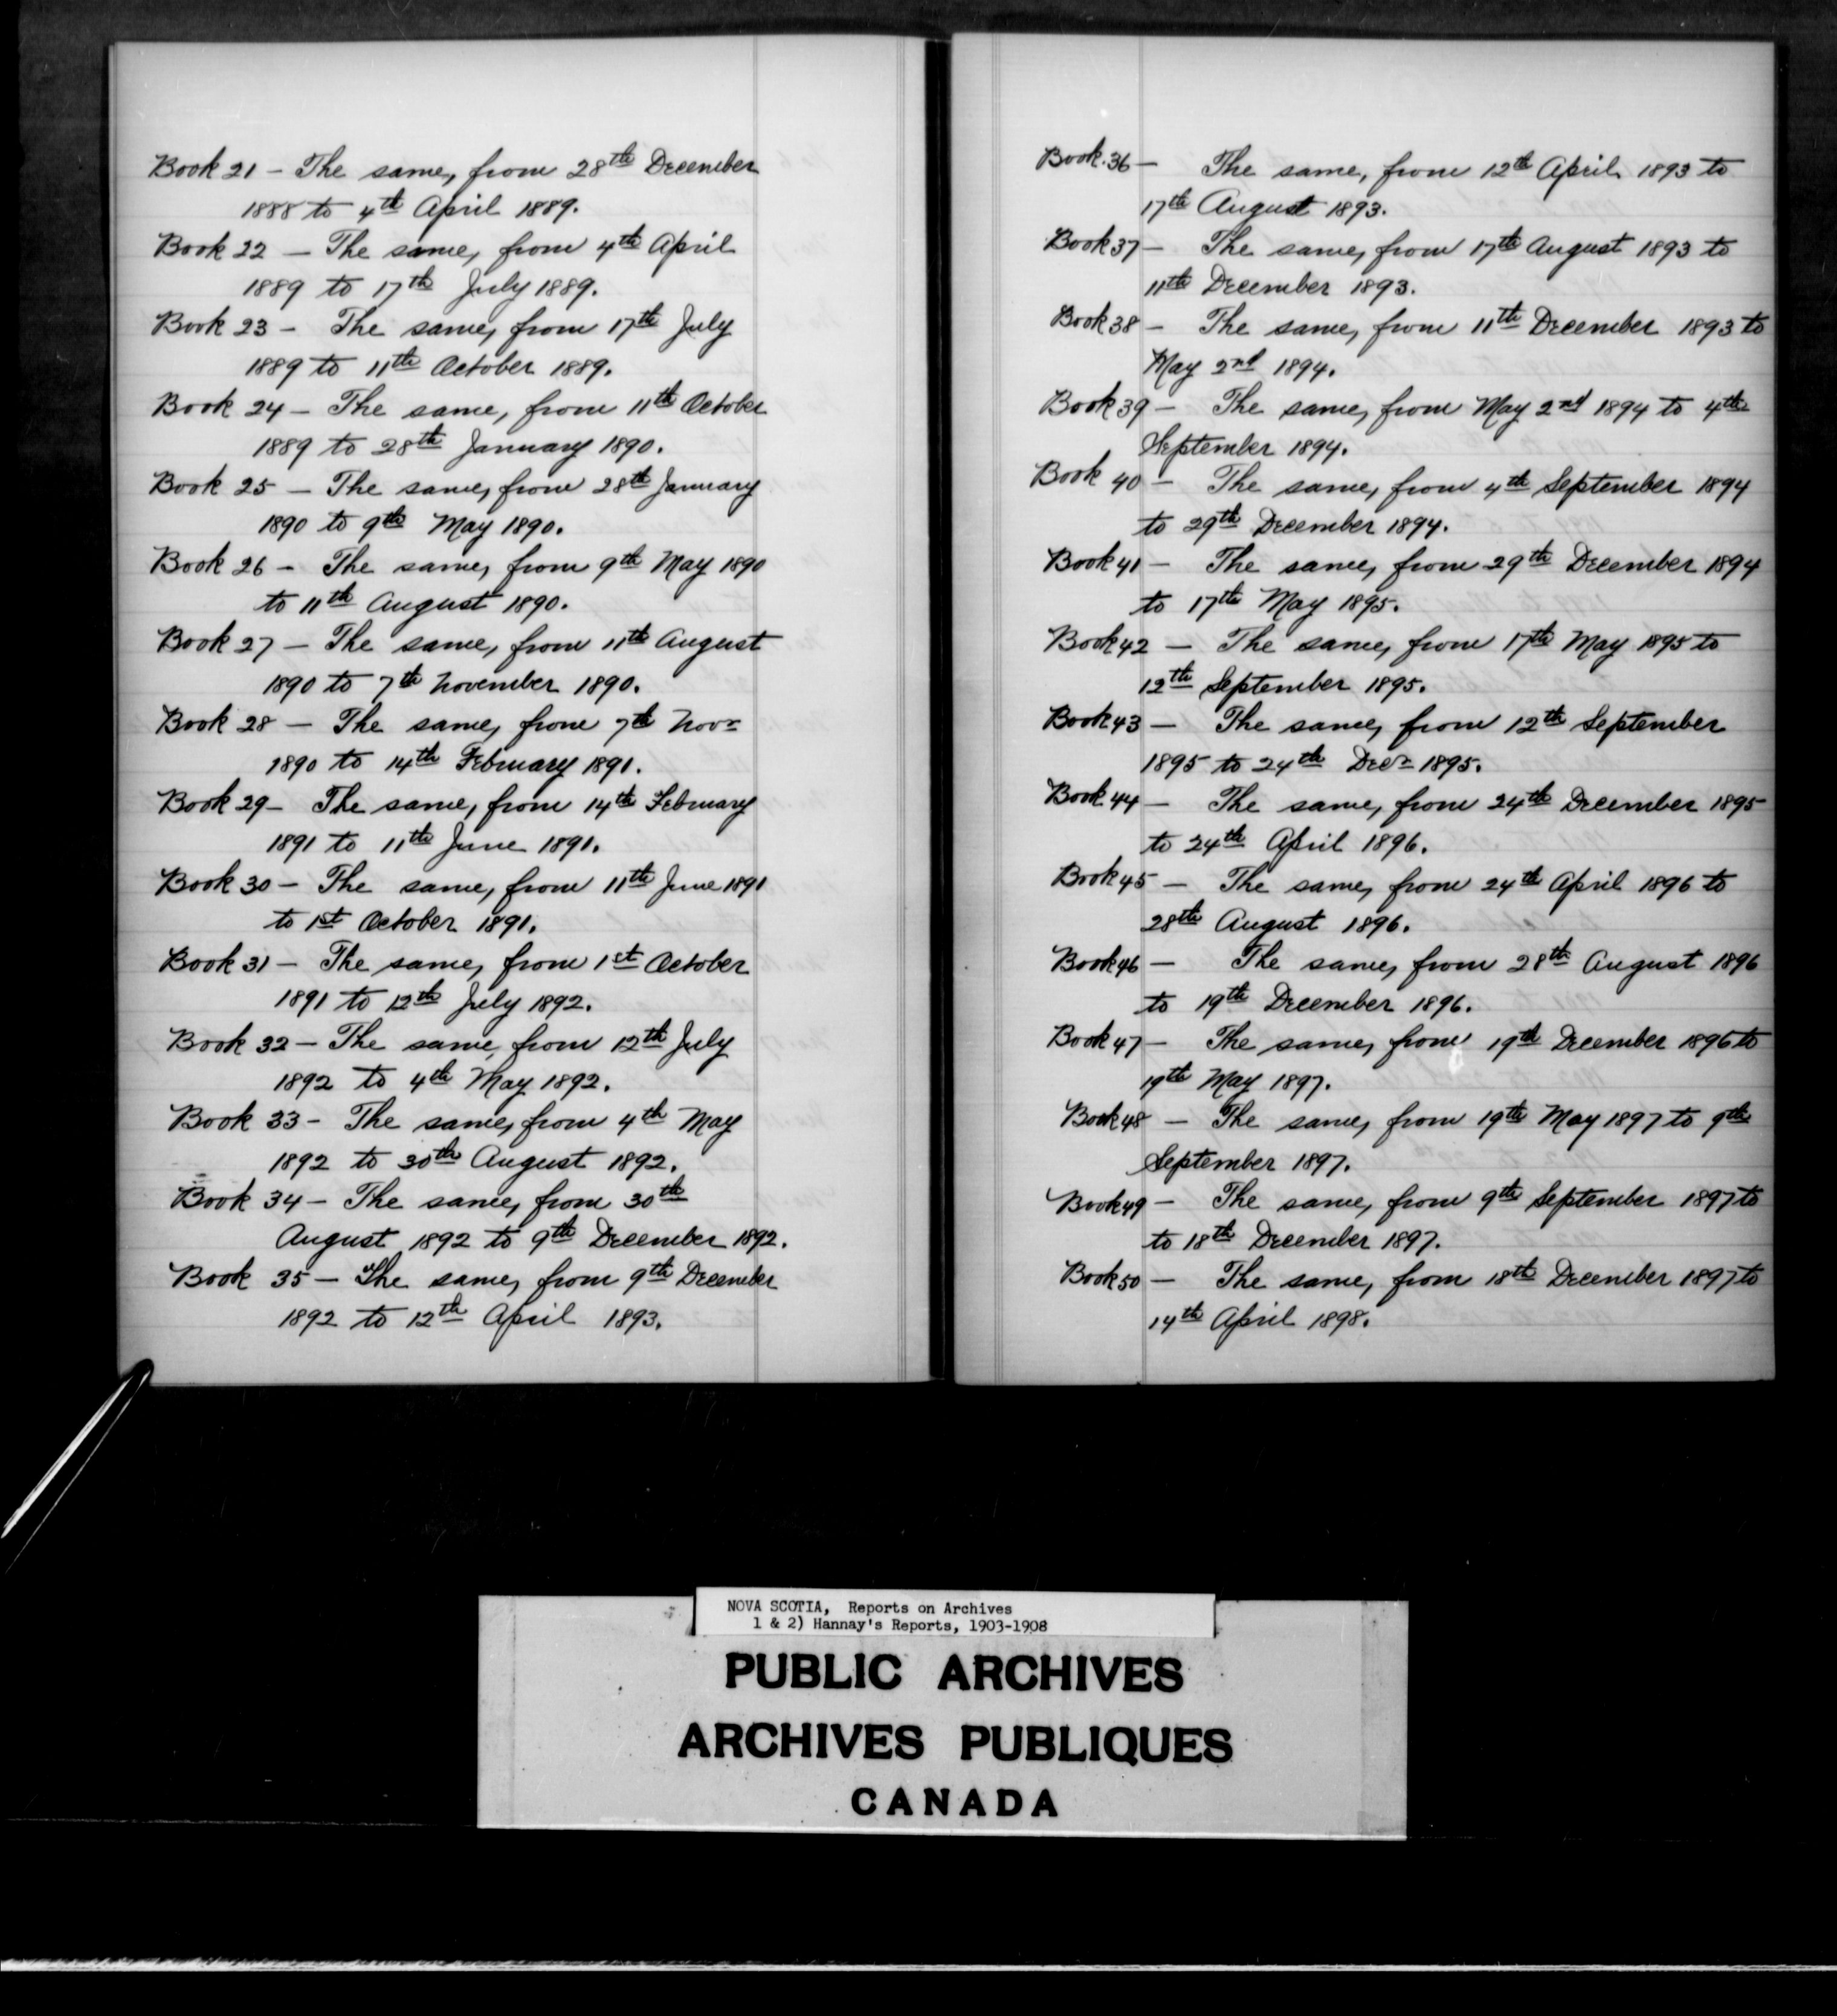 Book 21 – The same, from 28th December
1888 to 4th April 1889.
Book 22 – The same, from 4th April
1889 to 17th July 1889.
Book 23 – The same, from 17th July
1889 to 11th October 1889.
Book 24 – The same, from 11th October
1889 to 28th January 1890.
Book 25 – The same, from 28th January
1890 to 9th May 1890.
Book 26 – The same, from 9th May 1890
to 11th August 1890.
Book 27 – The same, from 11th August
1890 to 7th November 1890.
Book 28 – The same, from 7th Novr
1890 to 14th February 1891.
Book 29 – The same, from 14th February
1891 to 11th June 1891.
Book 30 – The same, from 11th June 1891
to 1st October 1891.
Book 31 – The same, from 1st October
1891 to 12th July 1892.
Book 32 – The same, from 12th July
1892 to 4th May 1892.
Book 33 – The same, from 4th May
1892 to 30th August 1892.
Book 34 – The same, from 30th
August 1892 to 9th December 1892.
Book 35 – The same, from 9th December
1892 to 12th April 1893.
Book 36 – The same, from 12th April 1893 to
17th August 1893.
Book 37 – The same, from 17th August 1893 to
11th December 1893.
Book 38 – The same, from 11th December 1893 to
May 2nd 1894.
Book 39 – The same, from May 2nd 1894 to 4th
September 1894.
Book 40 – The same, from 4th September 1894
to 29th December 1894.
Book 41 – The same, from 29th December 1894
to 17th May 1895.
Book 42 – The same, from 17th May 1895 to
12th September 1895.
Book 43 – The same, from 12th September
1895 to 24th Decr 1895.
Book 44 – The same, from 24th December 1895
to 24th April 1896.
Book 45 – The same, from 24th April 1896 to
28th August 1896.
Book 46 – The same, from 28th August 1896
to 19th December 1896.
Book 47 – The same, from 19th December 1896 to
19th May 1897.
Book 48 – The same, from 19th May 1897 to 9th
September 1897.
Book 49 – The same, from 9th September 1897 to
to 18th December 1897.
Book 50 – The same, from 18th December 1897 to
14th April 1898.
NOVA SCOTIA, Reports on Archives
1 & 2) Hannay's Reports, 1903-1908
PUBLIC ARCHIVES
ARCHIVES PUBLIQUES
CANADA